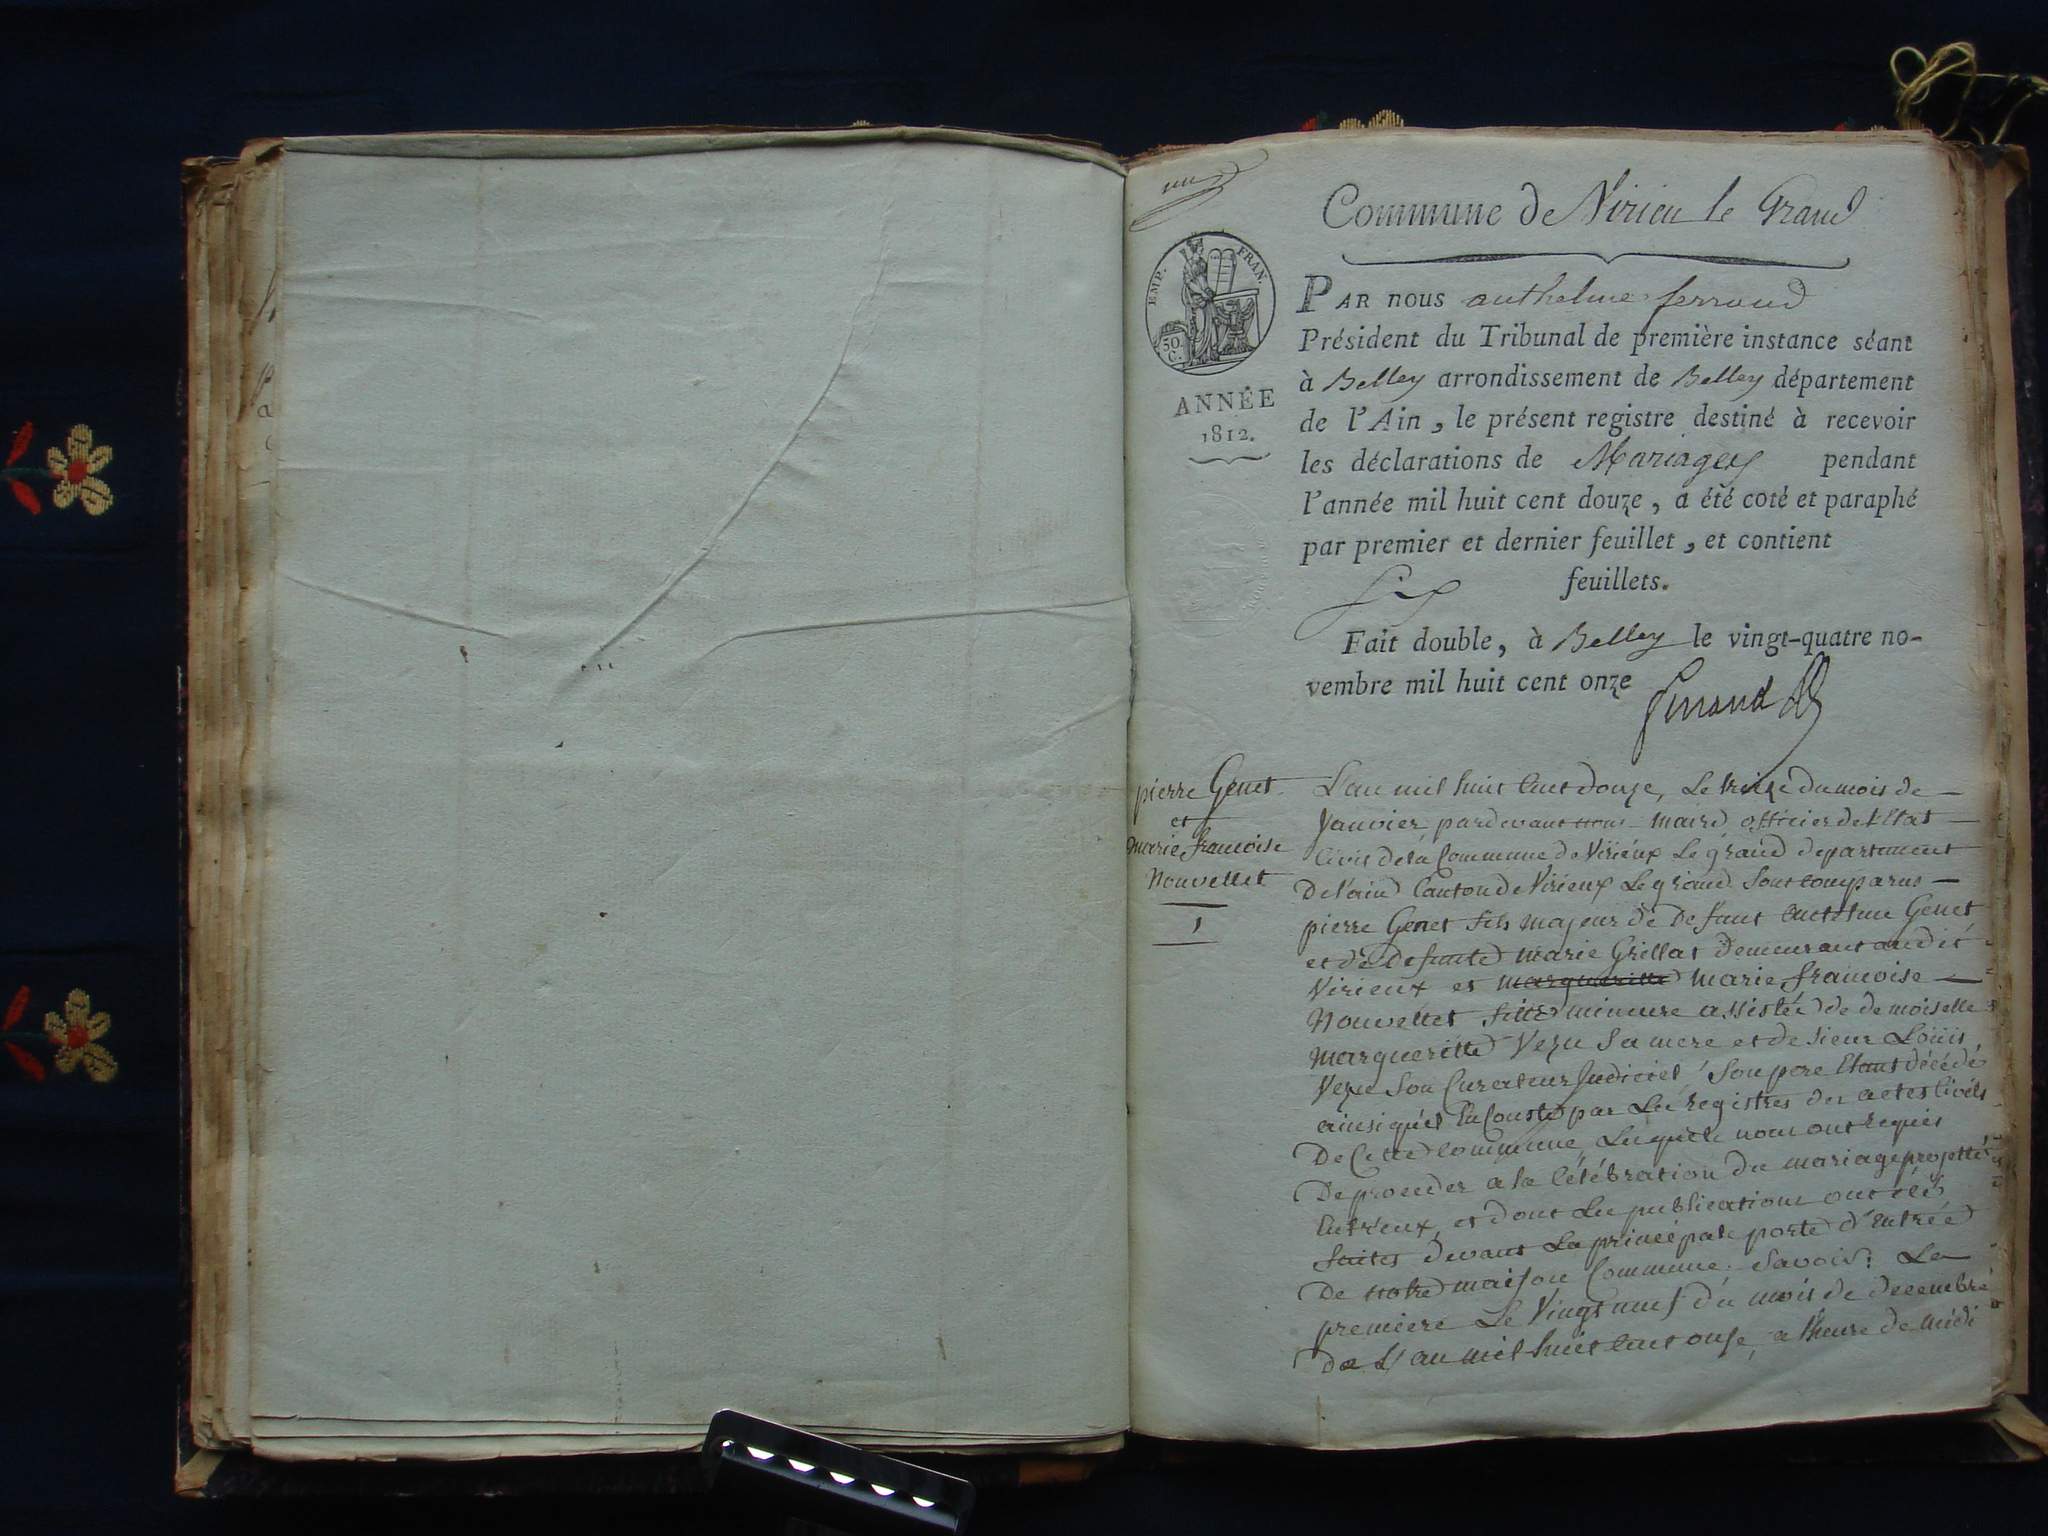 un
Commune de Virieu le Grand
EMP. FRAN.
30.
C.
ANNÉE
1812.
PAR nous anthelme ferrand
Président du Tribunal de première instance séant
à Belley arrondissement de Belley département
de l'Ain, le présent registre destiné à recevoir
les déclarations de Mariages pendant
l'année mil huit cent douze, a été coté et paraphé
par premier et dernier feuillet, et contient
six feuillets.
Fait double, à Belley le vingt-quatre no-
vembre mil huit cent onze
ferrand
pierre Genet
et
marie francoise
Nouvellet
1
L'an mil huit Cent douze, Le treize du mois de
Janvier, pardevant nous maire officier de l'Etat
Civil de la Commune de Virieux Le grand departement
De l'ain Canton de Virieux Le grand Sont comparus
pierre Genet fils majeur de Defunt Anthelme Genet
et de Defunte marie Grillat Demeurant audit
Virieux et margueritte marie francoise
Nouvellet fille mineure assistée de demoiselle
margueritte Vezu Sa mere et de sieur Louiis
Vezu Son Curateur Judiciel, Son pere Etant décédé
ainsi qu'il En Conste par Les registres des actes Civils
De Cette Commune, Lesquels nous ont requis
De proceder a la Célébration du mariage projetté
Entr'eux, et dont Les publications ont été
faites devant La principale porte d'Entrée
De notre maison Commune. Savoir: La
premiere Le Vingt neuf du mois de decembre
de L'an mil huit Cent onse, a l'heure de midi